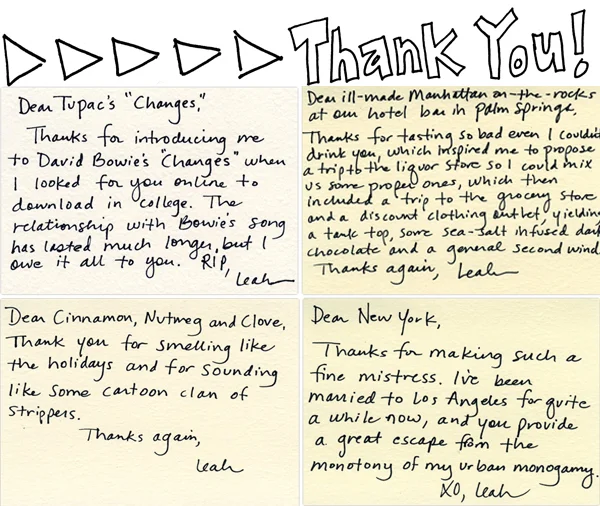 Thank You!
Dear Tupac's "Changes,"
Thanks for introducing me
to David Bowie's "Changes" when
I looked for you online to
download in college. The
relationship with Bowie's song
has lasted much longer, but I
owe it all to you. RIP,
Leah
Dear ill-made Manhattan on-the-rocks
at our hotel bar in Palm Springs,
Thanks for tasting so bad even I couldn't
drink you, which inspired me to propose
a trip to the liquor store so I could mix
us some proper ones, which then
included a trip to the grocery store
and a discount clothing outlet, yielding
a tank top, some sea-salt infused dark
chocolate and a general second wind.
Thanks again, Leah
Dear Cinnamon, Nutmeg and Clove,
Thank you for smelling like
the holidays and for sounding
like some cartoon clan of
strippers.
Thanks again,
Leah
Dear New York,
Thanks for making such a
fine mistress. I've been
married to Los Angeles for quite
a while now, and you provide
a great escape from the
monotony of my urban monogamy.
XO, Leah